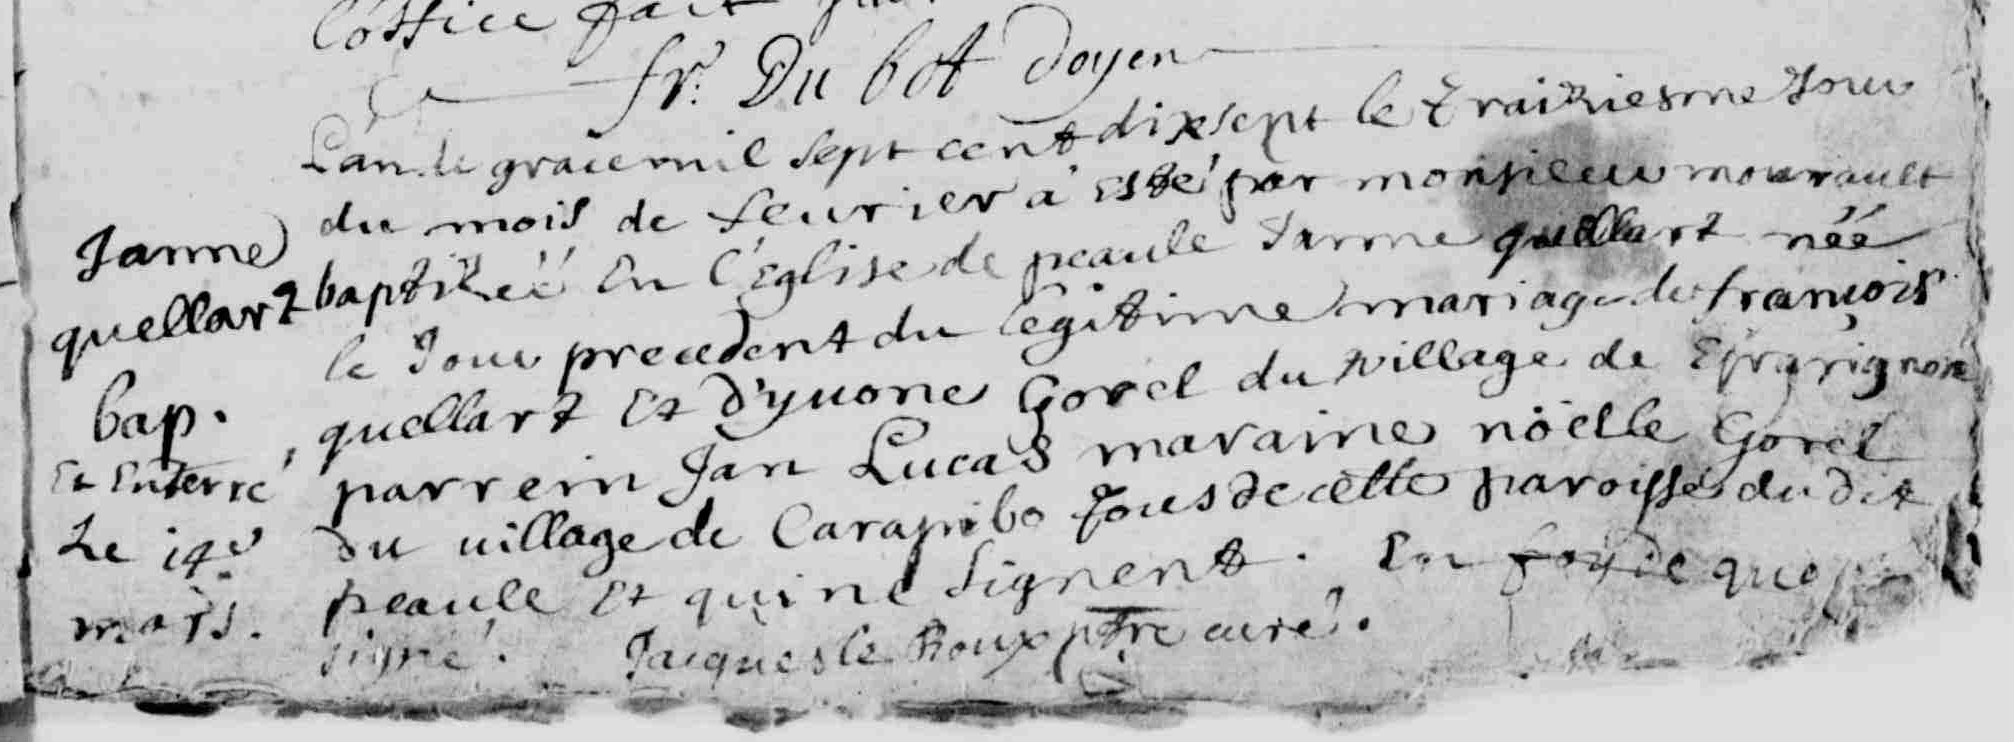 L'office fait par
fr. Du bot Doyen
L'an de grace mil sept cent dix sept le traiziesme Jour
du mois de feurier a esté par monsieur mourault
baptizéé En l'Eglise de peaule Janne quellart néé
le Jour precedent du legitime mariage de françois
quellart Et d'yuone Gorel du village de
parrein Jan Lucas maraine nöelle Gorel
du uillage de Carapibo Tous de cette paroisse du dit
peaule Et qui ne signent. En foy de quoy
signé. Jacques le Roux ptre curé.
Janne
quellart
bap.
Et Enterré
Le 14e
mars.